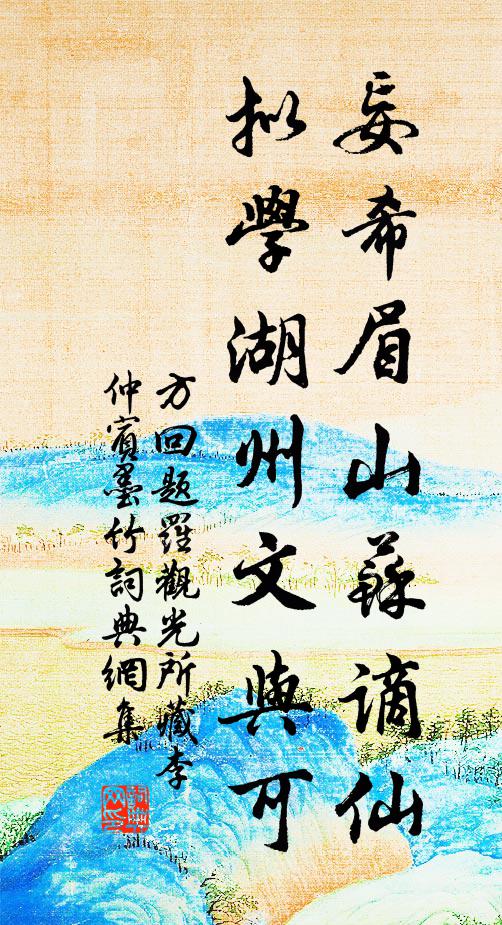 妄希眉山蘇謫仙
拟學湖州文與可
方回题羅觀光所藏李
仲賓墨竹詞典網集